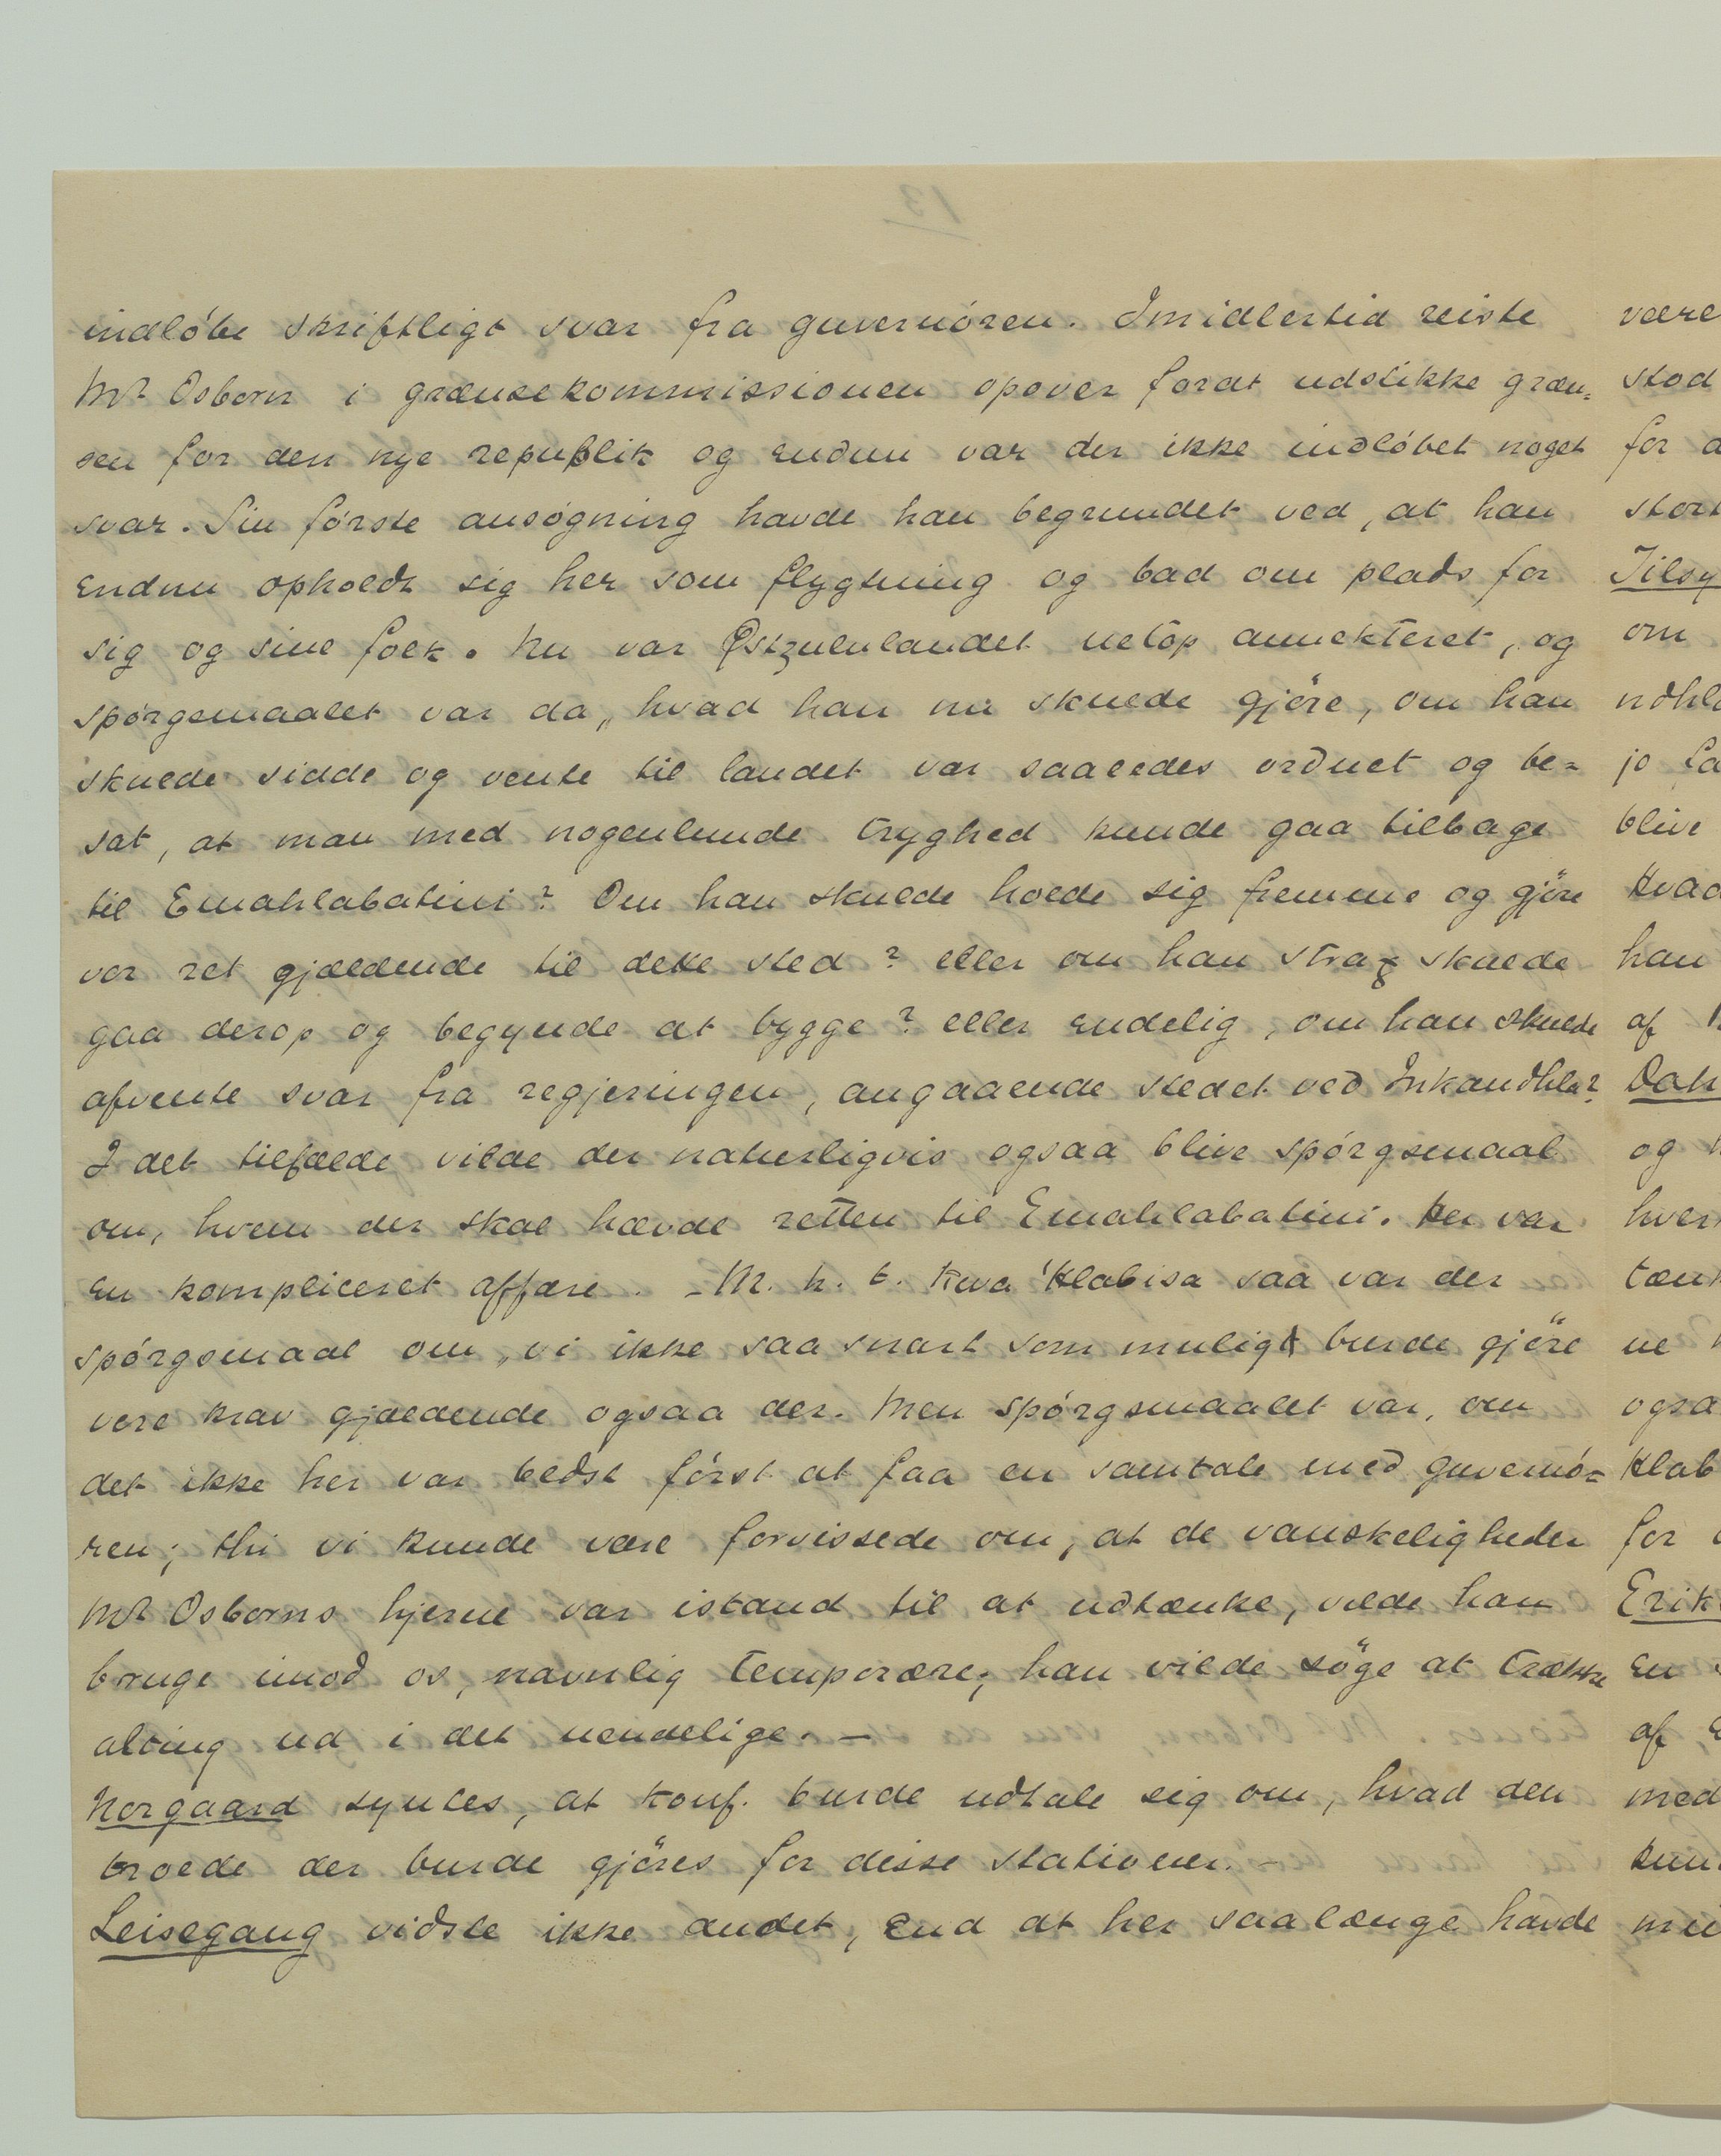 indløbe skriftligt svar fra guvernøren. Imidlertid reiste
Mr Osborn i grænsekommissionen opover forat udstikke græn=
sen for den nye republik og endnu var der ikke indløbet noget
svar. Sin første ansøgning havde han begrundet ved, at han
endnu opholdt sig her som flygtning og bad om plads for
sig og sine folk. Nu var Østzululandet netop annekteret, og
spørgsmaalet var da, hvad han nu skulde gjöre, om han
skulde sidde og vente til landet var saaledes ordnet og be=
sat, at man med nogenlunde tryghed kunde gaa tilbage
til Emahlabatini? Om han skulde holde sig fremme og gjöre
vor ret gjældende til dette sted? eller om han strax skulde
gaa derop og begynde at bygge? eller endelig, om han skulde
afvente svar fra regjeringen, angaaende stedet ved Inkandhla?
I det tilfælde vilde der naturligvis ogsaa blive spørgsmaal
om, hvem der skal hævde retten til Emahlabatini. Her var
en kompliceret affære. - M. h. t. Kwa Hlabisa saa var der
spørgsmaal om, vi ikke saa snart som muligt burde gjöre
vore krav gjældende ogsaa der. Men spørgsmaalet var, om
det ikke her var bedst først at faa en samtale med guvernø=
ren; thi vi kunde være forvissede om, at de vanskeligheder
Mr Osborns hjerne var istand til at udtænke, vilde han
bruge imod os, navnlig temporære; han vilde söge at trække
alting ud i det uendelige. —
Norgaard syntes, at konf. burde udtale sig om, hvad den
troede der burde gjöres for disse stationer. -
Leisegang vidste ikke andet, end at her saalænge havde
være
stod
for
Tilsy
om
ndhla
jo
blive
Hvad
han
af
Dah
og
hver
tænk
ne
ogsa
Hlab
for
Erik
en
af,
med
kun